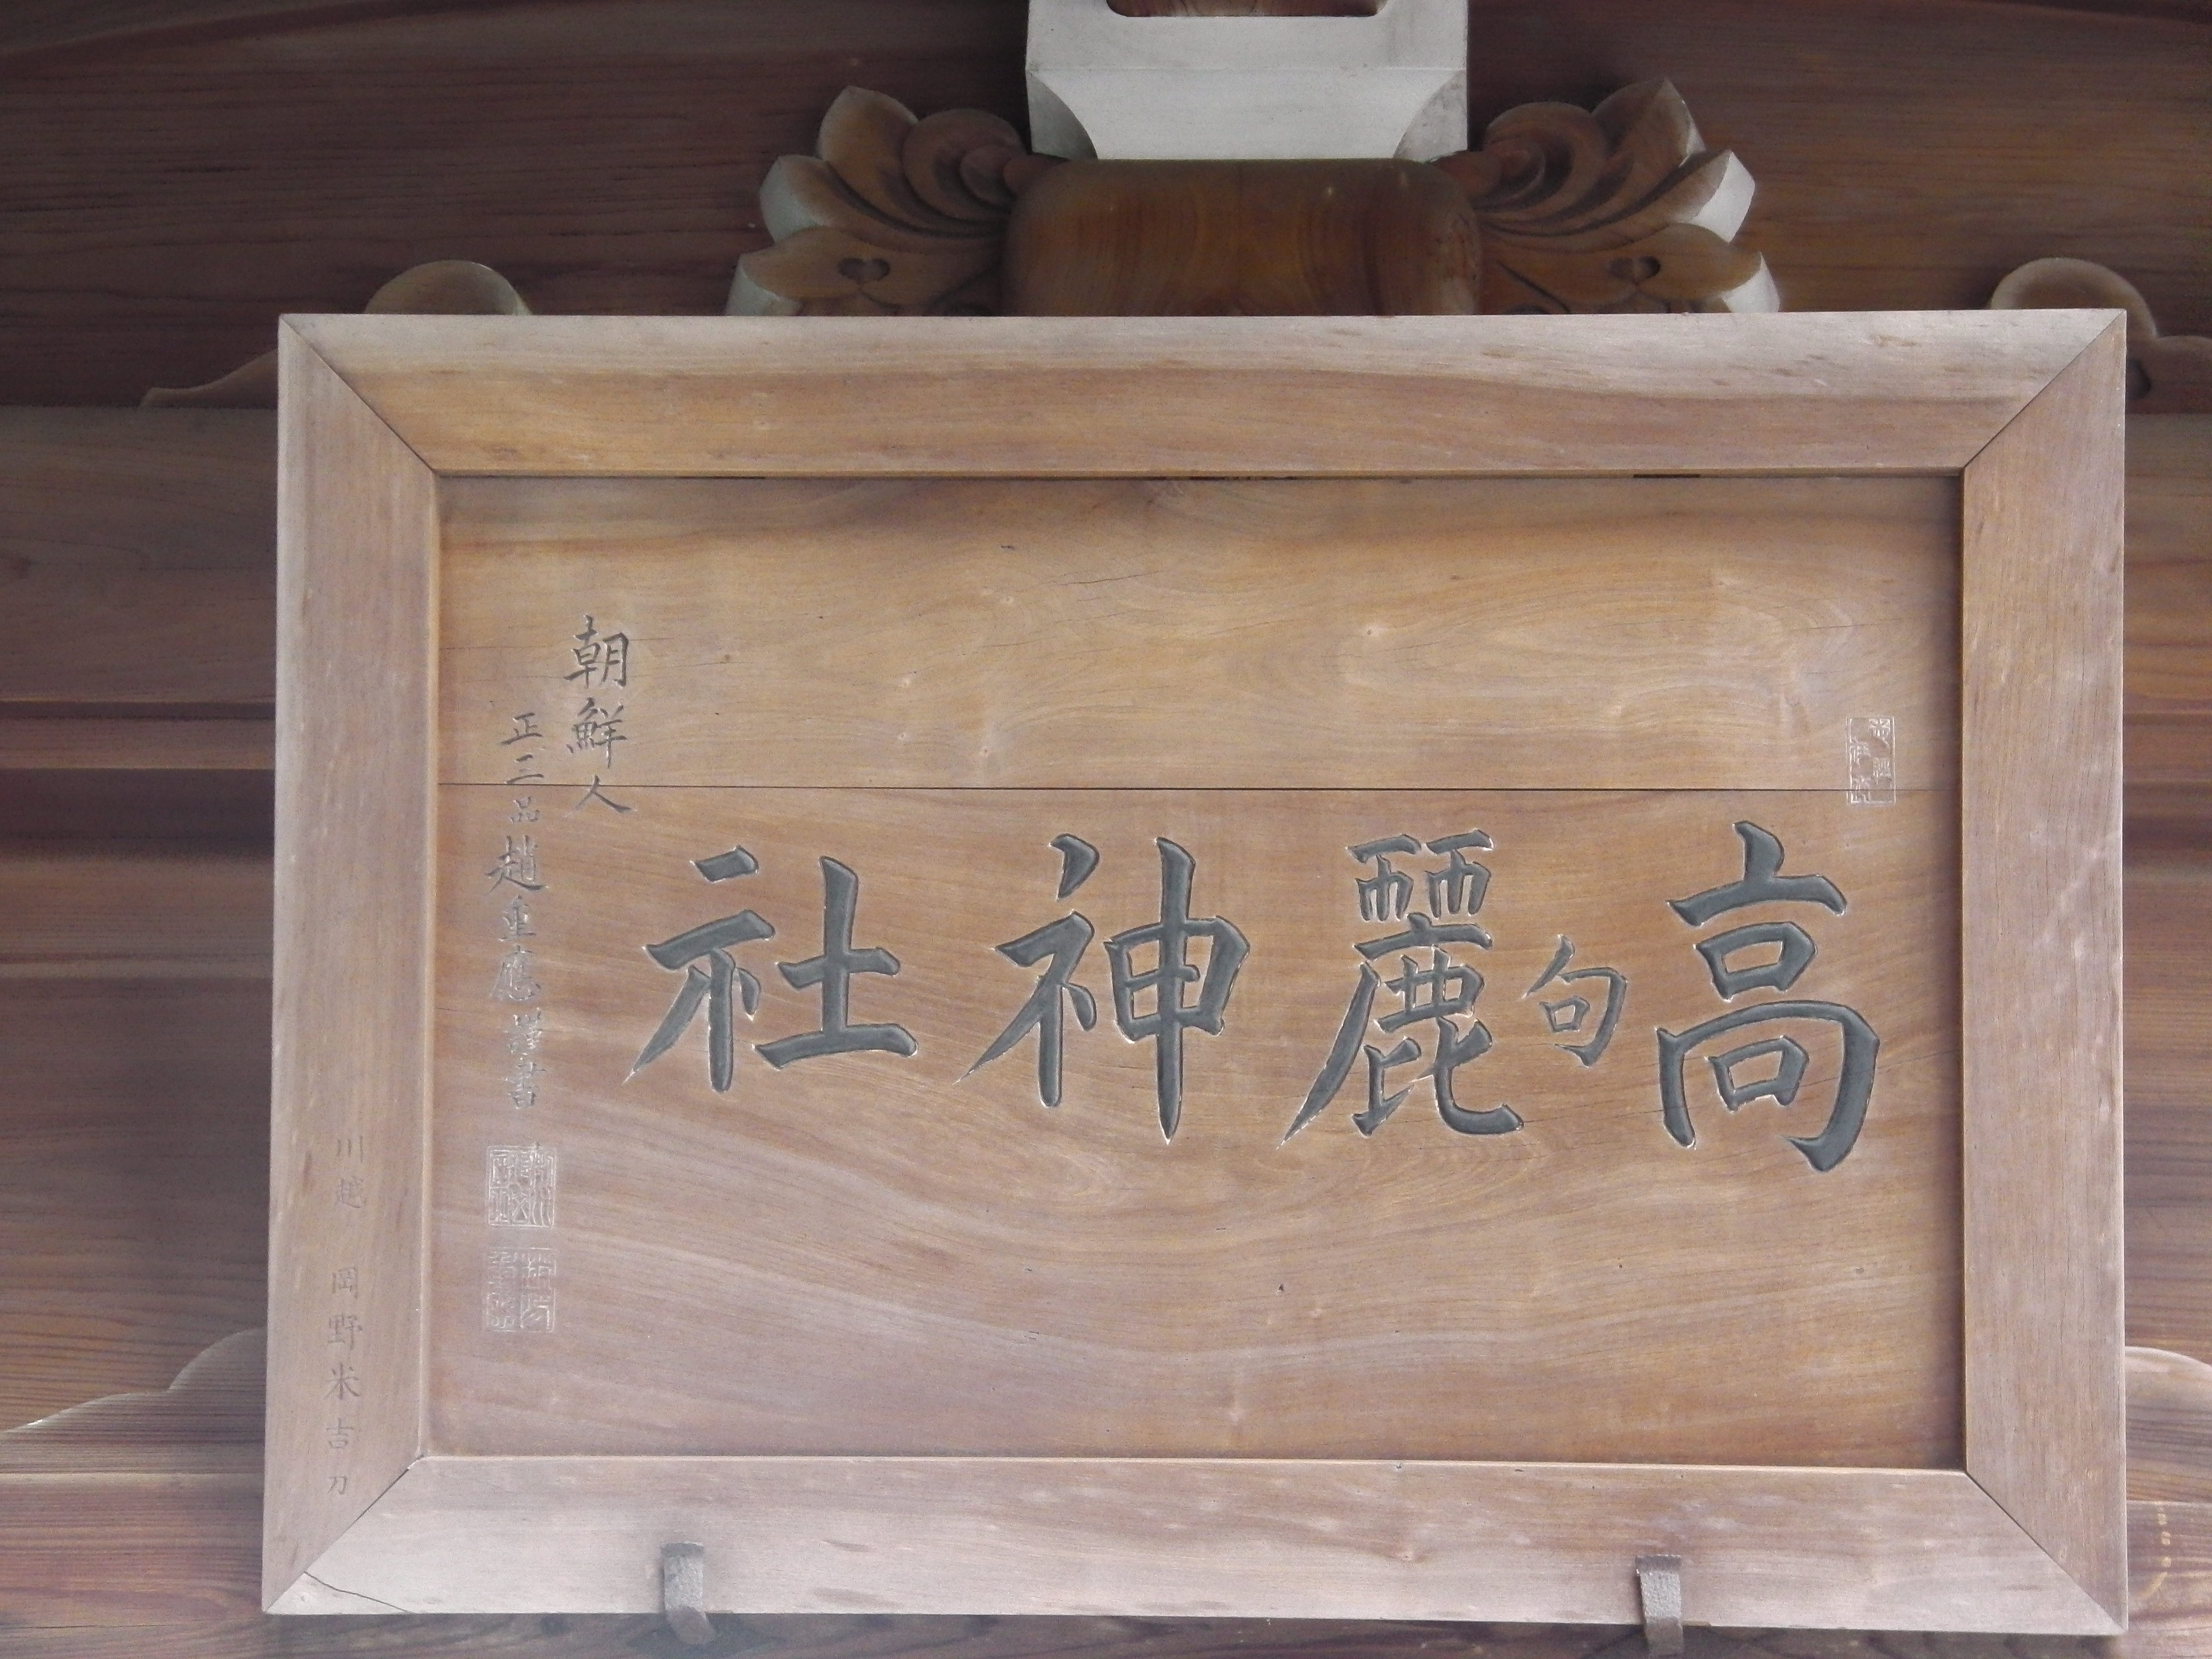 高句麗神社
朝鮮人
正三品趙重應謹書
川越 岡野米吉刀